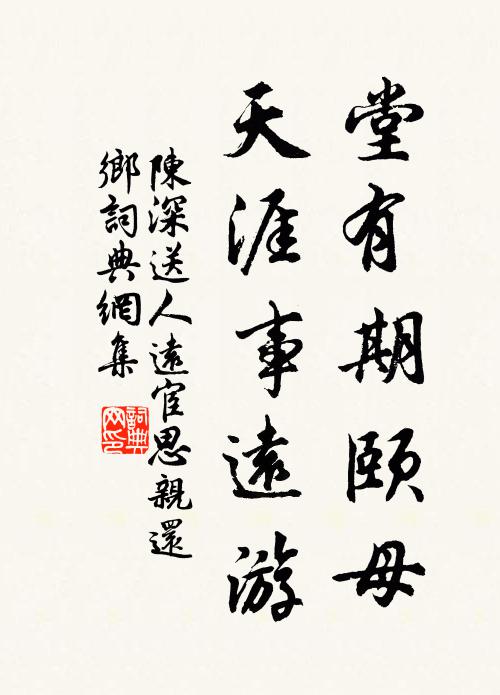 堂有期頤母
天涯事遠游
陳深送人遠宦思親還
鄉詞典網集
詞典网印